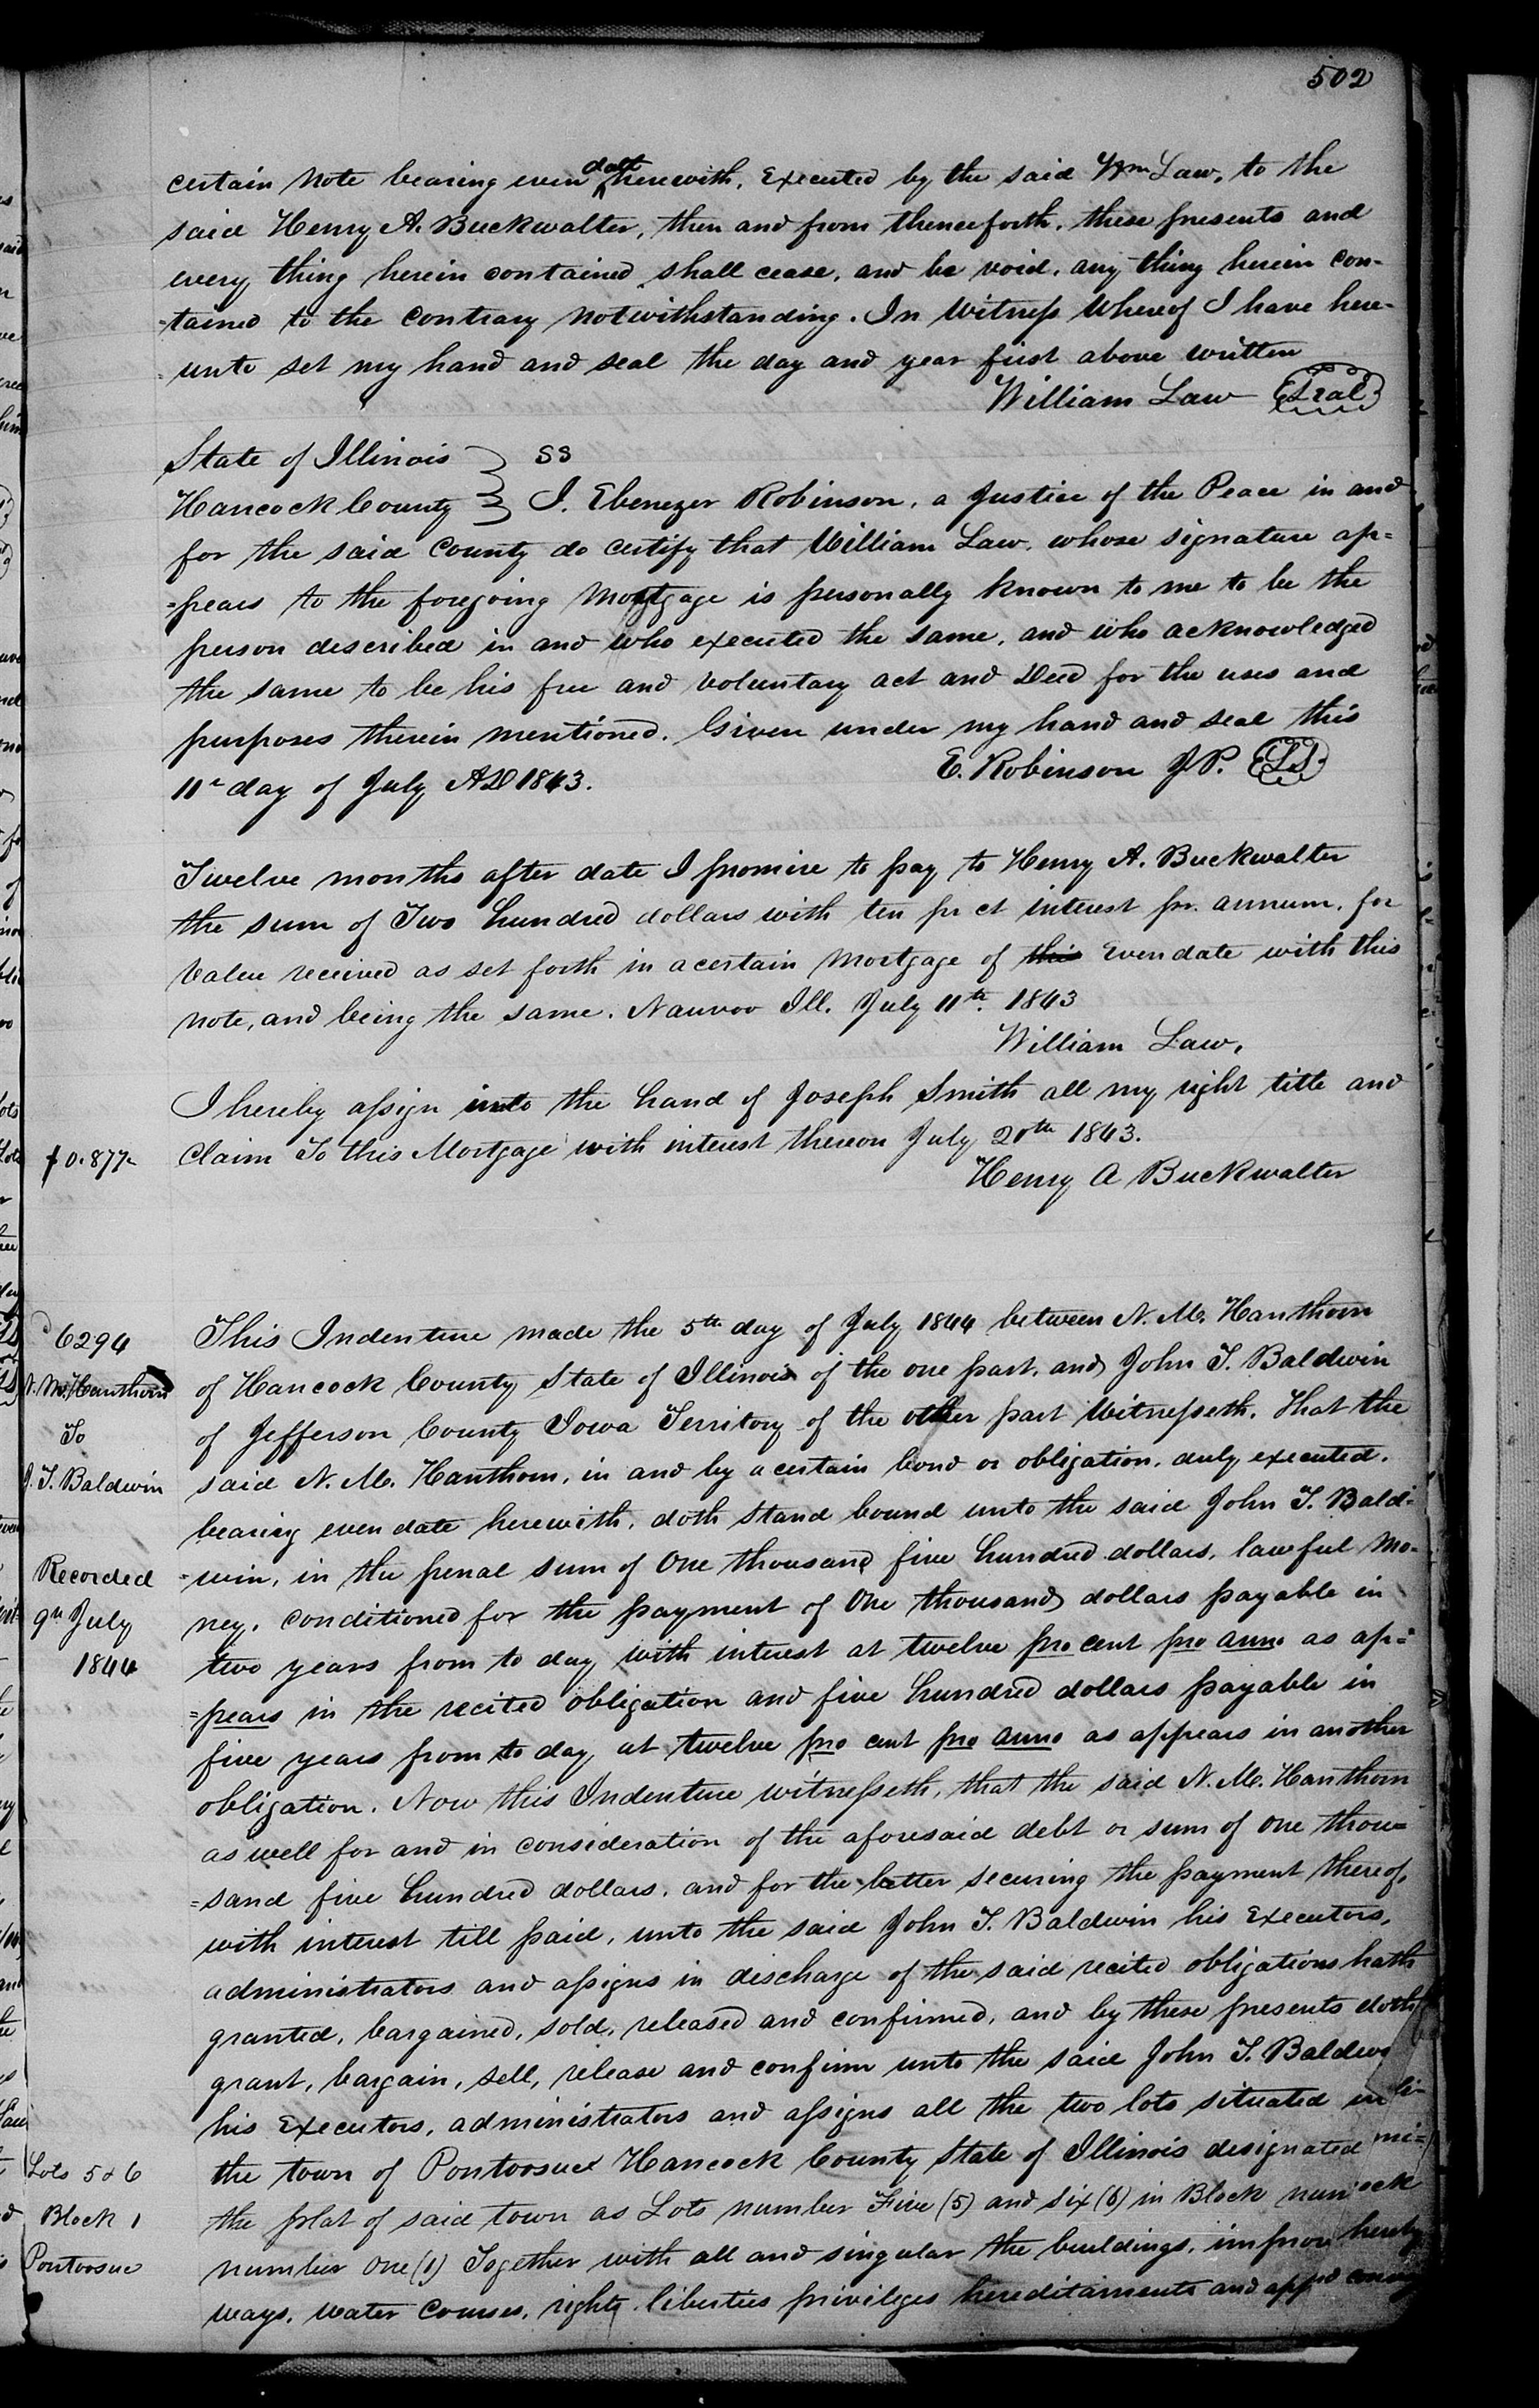 502
certain Note bearing even date herewith, Executed by the said Wm Law, to the
said Henry A. Buckwalter, then and from thenceforth, these presents and
every thing herein contained shall cease, and be void, any thing herein con-
-tained to the contrary notwithstanding. In Witness Whereof I have here-
-unto set my hand and seal the day and year first above written
William Law Seal
State of Illinois } SS
Hancock County } I. Ebenezer Robinson, a Justice of the Peace in and
for the said County do certify that William Law, whose signature ap=
=pears to the foregoing Mortgage is personally known to me to be the
person described in and who executed the same, and who acknowledged
the same to be his free and voluntary act and Deed for the uses and
purposes therein mentioned. Given under my hand and seal this
11th day of July AD 1843. E. Robinson J.P. LS
Twelve months after date I promise to pay to Henry A. Buckwalter
the sum of Two hundred dollars with ten pr ct interest pr. annum, for
Value received as set forth in a certain Mortgage of this even date with this
note, and being the same. Nauvoo Ill. July 11th. 1843
William Law,
I hereby assign into the hand of Joseph Smith all my right title and
Claim To this Mortgage with interest thereon July 20th 1843.
0.877
Henry A Buckwalter
6294
N. M. Hanthorn
To
J. T. Baldwin
Recorded
9th July
1844
This Indenture made the 5th day of July 1844 between N. M. Hanthorn
of Hancock County State of Illinois of the one part, and John T. Baldwin
of Jefferson County Iowa Territory of the other part Witnesseth, that the
said N. M. Hanthorn, in and by a certain bond or obligation, duly executed.
bearing even date herewith, doth stand bound unto the said John T. Bald=
=win, in the penal sum of One thousand five hundred dollars, lawful mo-
ney, conditioned for the payment of One thousand dollars payable in
two years from to day with interest at twelve pro cent pro anno as ap=
=pears in the recited obligation and five hundred dollars payable in
five years from to day at twelve pro cent pro anno as appears in another
obligation. Now this Indenture witnesseth, that the said N. M. Hanthorn
as well for and in consideration of the aforesaid debt or sum of one thou=
=sand five hundred dollars, and for the better securing the payment thereof,
with interest till paid, unto the said John T. Baldwin his Executors,
administrators and assigns in discharge of the said recited obligations hath
granted, bargained, sold, released and confirmed, and by these presents doth
grant, bargain, sell, release and confirm unto the said John T. Baldw
his Executors, administrators and assigns all the two lots situated in
the town of Pontoosuc Hancock County State of Illinois designated
the plat of said town as Lots number Five (5) and six (6) in Block num
number one (1) Together with all and singular the buildings, improv
ways, water courses, rights liberties privileges hereditaments and app
Lots 5 & 6
Block 1
Pontoosuc